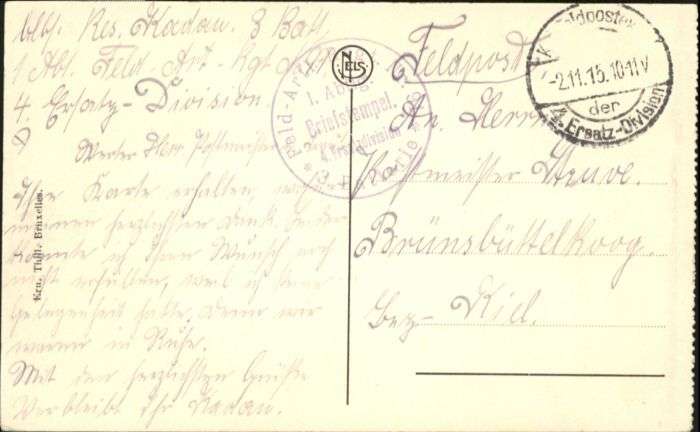 Res. Kadau. 3 Batt.
1 Abt. Feld-Art-Rgt
4. Ersatz-Division
Werter Herr Postmeister
Ihre Karte erhalten,
meinen herzlichsten Dank.
konnte ich Ihren Wunsch noch
nicht erfüllen, weil ich keine
Gelegenheit hatte, denn wir
waren in Ruhe.
Mit den herzlichsten Grüßen
Verbleibt Ihr Kadau.
NELS
Feld-Art
1. Abt.
Briefstempel
4. Ersatz-Division
Feldpost
An Herrn
Postmeister Struve.
Brünsbüttelkoog.
Bez- Kiel.
K. Feldpostex
-2.11.15.10-11V
der
4. Ersatz-Division
Ern. Thill, Bruxelles.